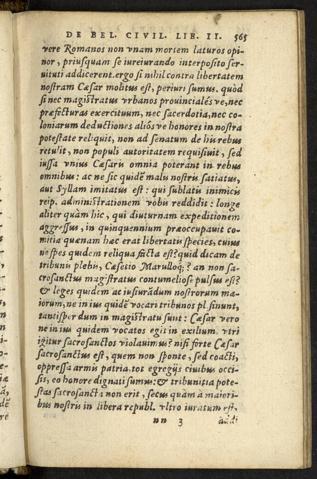 DE BEL. CIVIL. LIB. II. 565
vere Romanos non vnam mortem laturos opi-
nor, priusquam se iureiurando interposito ser-
uituti addicerent. ergo si nihil contra libertatem
nostram Cæsar molitus est, periuri sumus. quòd
si nec magistratus vrbanos provincialésve, nec
præfecturas exercituum, nec sacerdotia, nec co-
loniarum deductiones aliósve honores in nostra
potestate reliquit, non ad senatum de his rebus
retulit, non populi autoritatem requisiuit, sed
iussa vnius Cæsaris omnia poterant in rebus
omnibus: ac ne sic quidē malis nostris satiatus,
aut Syllam imitatus est: qui sublatis inimicis
reip. administrationem vobis reddidit: longe
aliter quàm hic, qui diuturnam expeditionem
aggressus, in quinquennium præoccupauit co-
mitia quænam hæc erat libertatis species, cuius
ne spes quidem reliqua facta est? quid dicam de
tribunis plebis, Cæsetio Marulloq;? an non sa-
crosanctus magistratus contumeliose pulsus est?
& leges quidem ac iusiurādum nostrorum ma-
iorum, ne in ius quidē vocari tribunos pl. sinunt,
tantisper dum in magistratu sunt: Cæsar vero
ne in ius quidem vocatos egit in exilium. vtri
igitur sacrosanctos violauimus? nisi forte Cæsar
sacrosanctus est, quem non sponte, sed coacti,
oppressa armis patria, tot egregijs ciuibus occi-
sis, eo honore dignati sumus: & tribunitia pote-
stas sacrosancta non erit, secus quàm à maiori-
bus nostris in libera republ. vltro iuratum est,
nn 3 audi